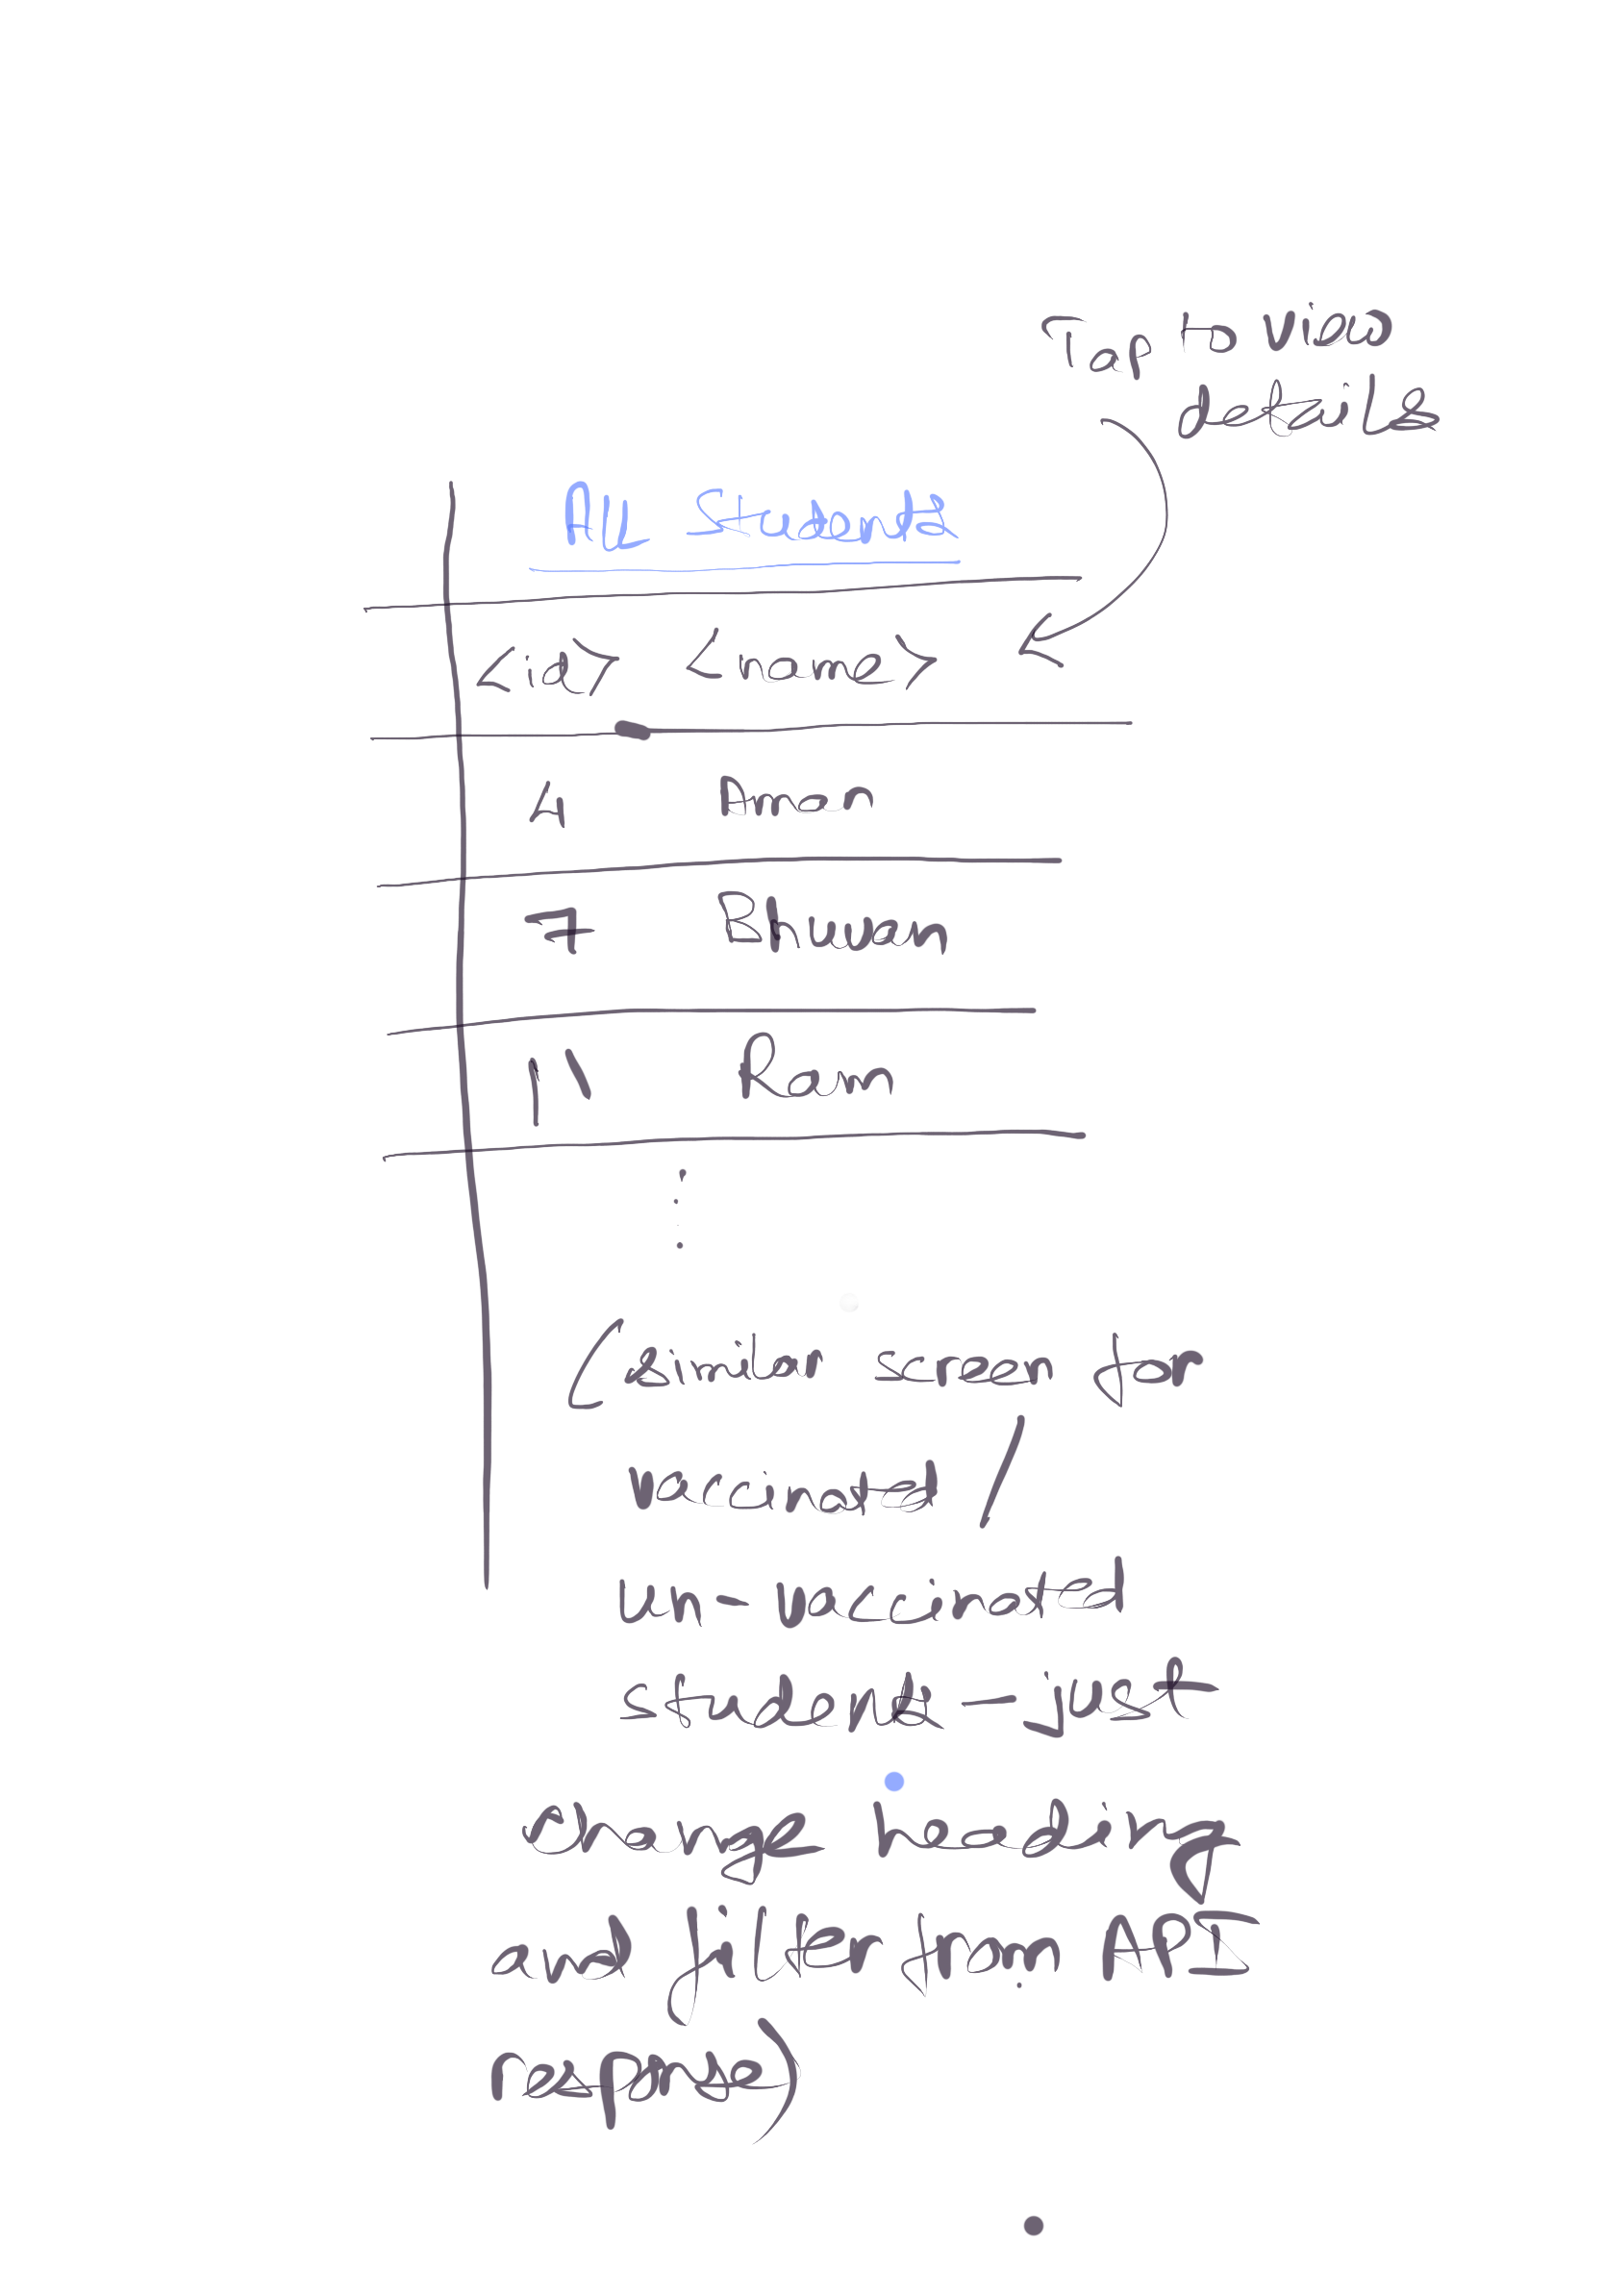 Tap to view
details
All Students
<id> <name>
4 Aman
7 Bhuwan
11 Ram
(similar screen for
vaccinated /
un-vaccinated
students - just
change heading
and filter from API
response)